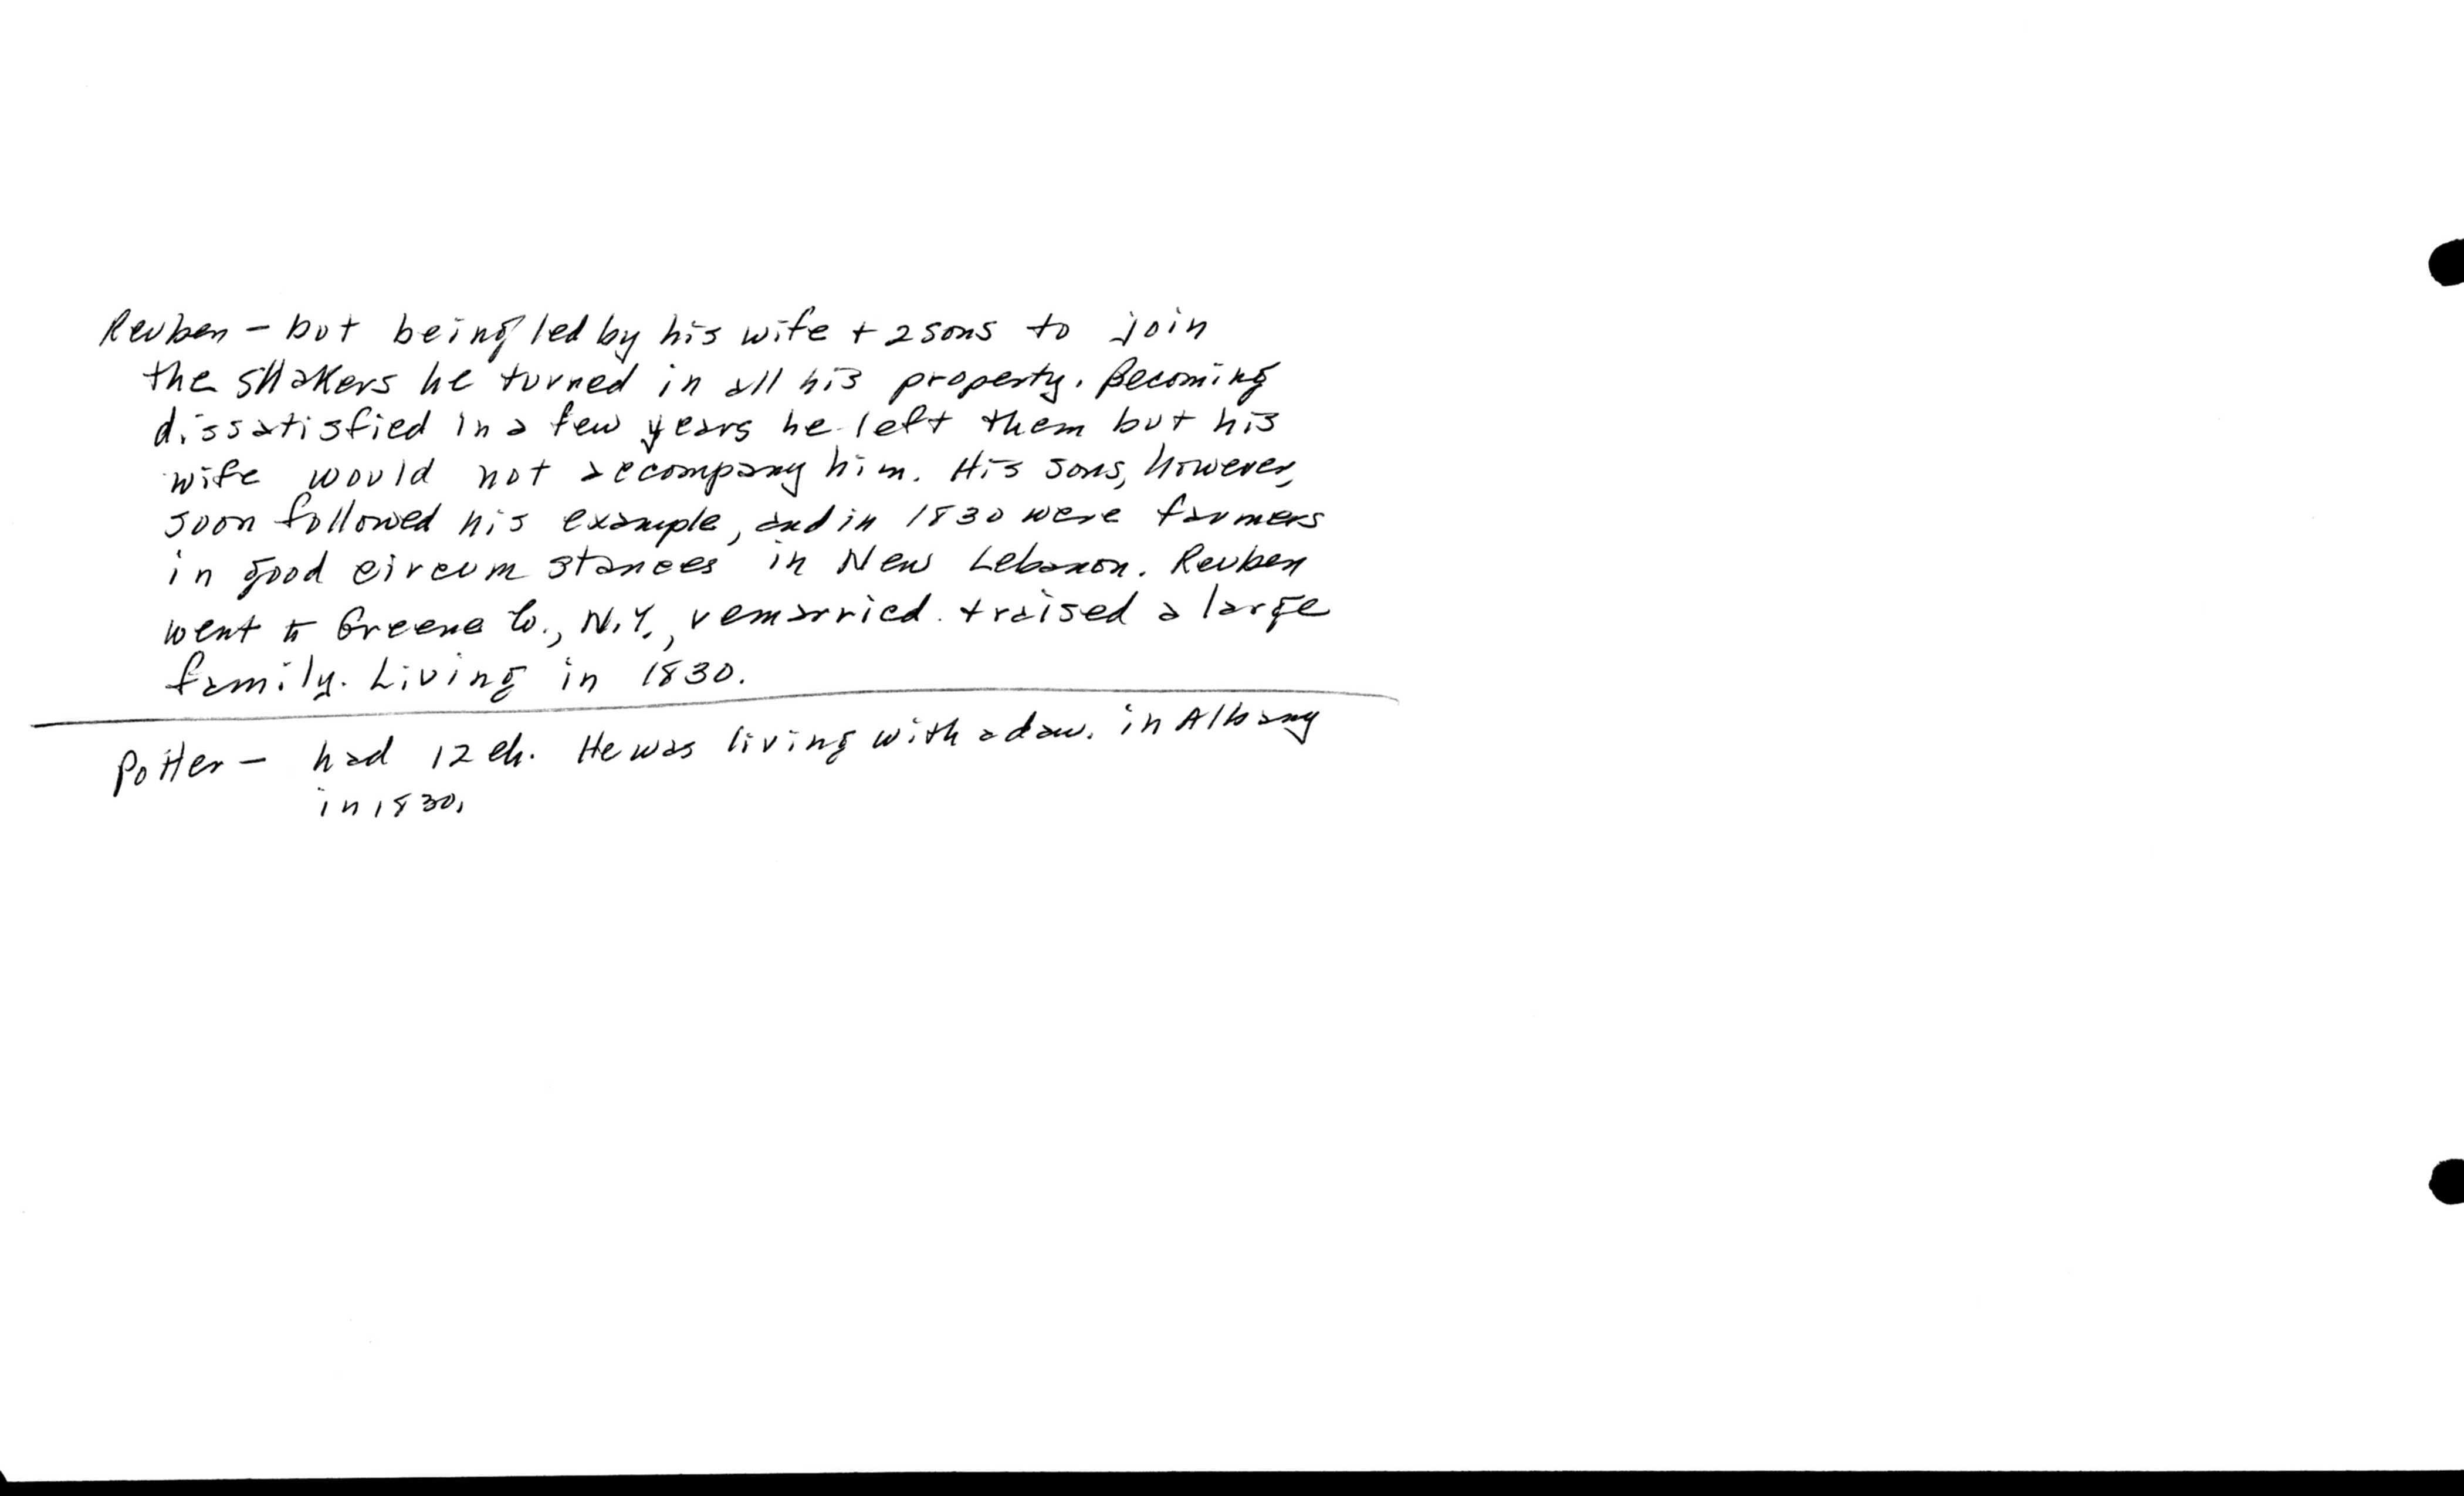 Reuben - but being led by his wife + 2 sons to join
the SHakers he turned in all his property. Becoming
dissatisfied in a few years he left them but his
wife would not accompany him. His sons, however,
soon followed his example, and in 1830 were farmers
in good circumstances in New Lebanon. Reuben
went to Greene Co., N.Y., remarried + raised a large
family. Living in 1830.
Potter - had 12 ch. He was living with a dau. in Albany
in 1830.